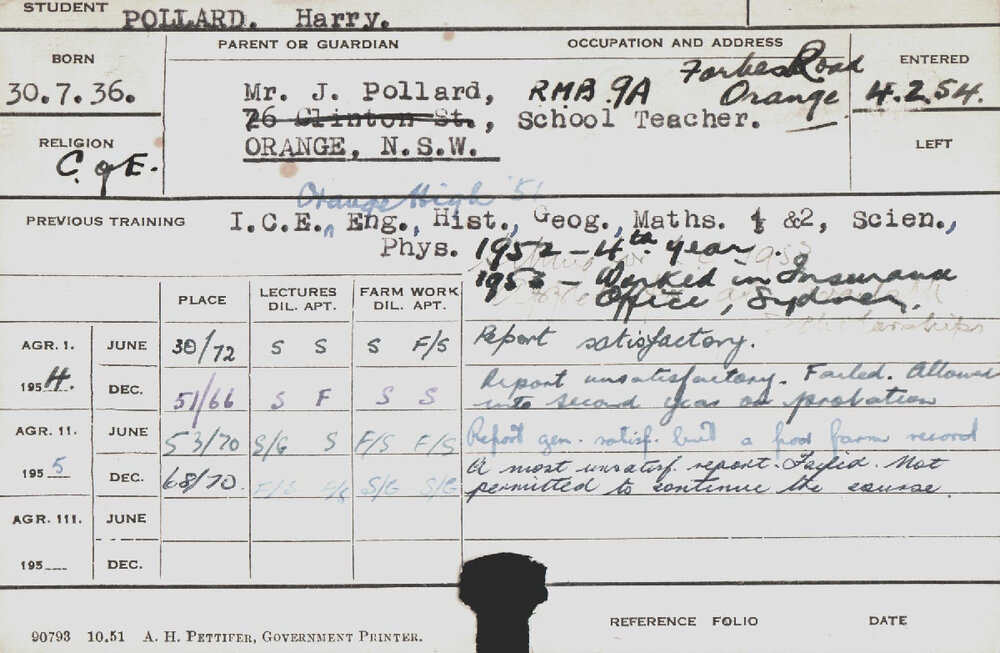 STUDENT POLLARD. Harry.
BORN PARENT OR GUARDIAN OCCUPATION AND ADDRESS ENTERED
30.7.36. Mr. J. Pollard, RMB 9A Forbes Road Orange 4.2.54.
26 Clinton St., School Teacher.
RELIGION ORANGE, N.S.W. LEFT
C. of E.
Orange High '51
PREVIOUS TRAINING I.C.E., Eng., Hist., Geog., Maths. 1 &2, Scien.,
Phys. 1952 - 4th year.
1953 - Worked in Insurance
Office, Sydney.
PLACE LECTURES DIL. APT. FARM WORK DIL. APT.
AGR. 1. JUNE 30/72 S S S F/S Report satisfactory.
1954. DEC. 51/66 S F S S Report unsatisfactory. Failed. Allowed
into second year on probation
AGR. 11. JUNE 53/70 S/G S F/S F/S Report gen. satisf. but a poor farm record
1955 DEC. 68/70. F/S F/S S/G S/G A most unsatisf. report. Failed. Not
permitted to continue the course.
AGR. 111. JUNE
195 DEC.
REFERENCE FOLIO DATE
90793 10.51 A. H. PETTIFER, GOVERNMENT PRINTER.